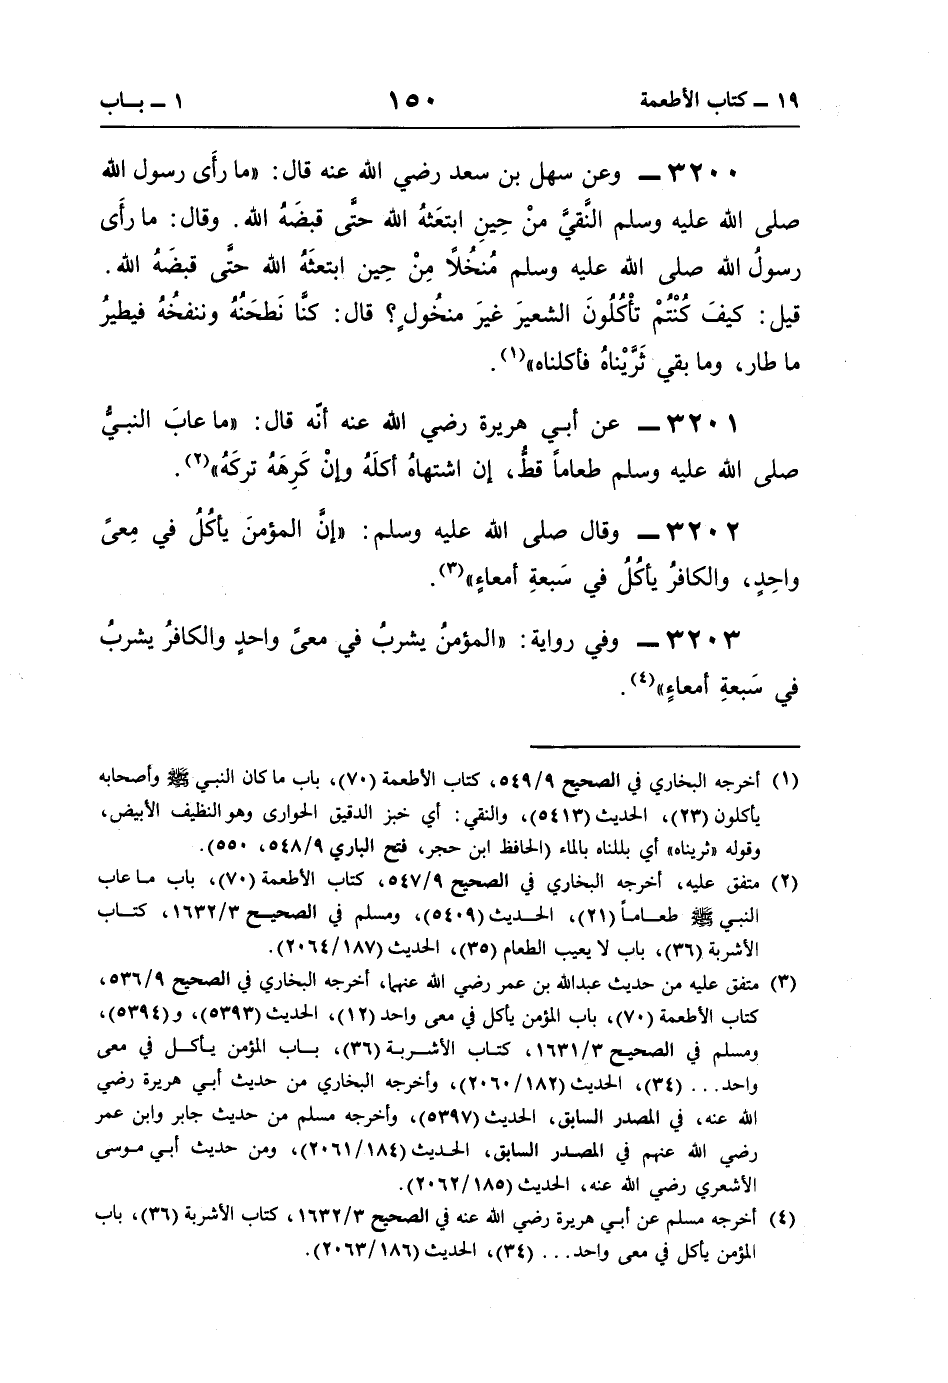 ١٩ ـ كتاب الأطعمة ١٥٠ ١ ـ بـاب
٣٢٠٠ ـ وعن سهل بن سعد رضي الله عنه قال: «ما رأَى رسول الله
صلى الله عليه وسلم النَّقيَّ منْ حِينِ ابتعَثهُ الله حتَّى قبضَهُ الله. وقال: ما رأَى
رسولُ الله صلى الله عليه وسلم مُنخُلًا مِنْ حِين ابتعثَهُ الله حتَّى قبضَهُ الله.
قيل: كيفَ كُنْتُمْ تأْكُلُونَ الشعيرَ غيرَ منخُولٍ؟ قال: كنَّا نَطحَنُهُ وننفخُهُ فيطيرُ
ما طار، وما بقي ثَرَّيْناهُ فأكلناه»(١).
٣٢٠١ ـ عن أبي هريرة رضي الله عنه أنّه قال: «ما عابَ النبيُّ
صلى الله عليه وسلم طعاماً قطُّ، إن اشتهاهُ أكلَهُ وإنْ كَرِهَهُ تركَهُ»(٢).
٣٢٠٢ ـ وقال صلى الله عليه وسلم: «إنَّ المؤمنَ يأكُلُ في مِعىً
واحِدٍ، والكافرُ يأكُلُ في سَبعةِ أمعاءٍ»(٣).
٣٢٠٣ ـ وفي رواية: «المؤمنُ يشربُ في معىً واحدٍ والكافرُ يشربُ
في سَبعةِ أمعاءٍ»(٤).
(١) أخرجه البخاري في الصحيح ٥٤٩/٩، كتاب الأطعمة (٧٠)، باب ما كان النبي ﷺ وأصحابه
يأكلون (٢٣)، الحديث (٥٤١٣)، والنقي: أي خبز الدقيق الحوارى وهو النظيف الأبيض،
وقوله «ثريناه» أي بللناه بالماء (الحافظ ابن حجر، فتح الباري ٥٤٨/٩، ٥٥٠).
(٢) متفق عليه، أخرجه البخاري في الصحيح ٥٤٧/٩، كتاب الأطعمة (٧٠)، باب ما عاب
النبي ﷺ طعـامـاً (٢١)، الحـديث (٥٤٠٩)، ومسلم في الصحيـح ١٦٣٢/٣، كتـاب
الأشربة (٣٦)، باب لا يعيب الطعام (٣٥)، الحديث (٢٠٦٤/١٨٧).
(٣) متفق عليه من حديث عبدالله بن عمر رضي الله عنهما، أخرجه البخاري في الصحيح ٥٣٦/٩،
كتاب الأطعمة (٧٠)، باب المؤمن يأكل في معى واحد (١٢)، الحديث (٥٣٩٣)، و(٥٣٩٤)،
ومسلم في الصحيح ١٦٣١/٣، كتاب الأشـربـة (٣٦)، بـاب المؤمن يـأكـل في معى
واحد... (٣٤)، الحديث (٢٠٦٠/١٨٢)، وأخرجه البخاري من حديث أبي هريرة رضي
الله عنه، في المصدر السابق، الحديث (٥٣٩٧)، وأخرجه مسلم من حديث جابر وابن عمر
رضي الله عنهم في المصدر السابق، الحديث (٢٠٦١/١٨٤)، ومن حديث أبي موسى
الأشعري رضي الله عنه، الحديث (٢٠٦٢/١٨٥).
(٤) أخرجه مسلم عن أبي هريرة رضي الله عنه في الصحيح ١٦٣٢/٣، كتاب الأشربة (٣٦)، باب
المؤمن يأكل في معى واحد... (٣٤)، الحديث (٢٠٦٣/١٨٦).